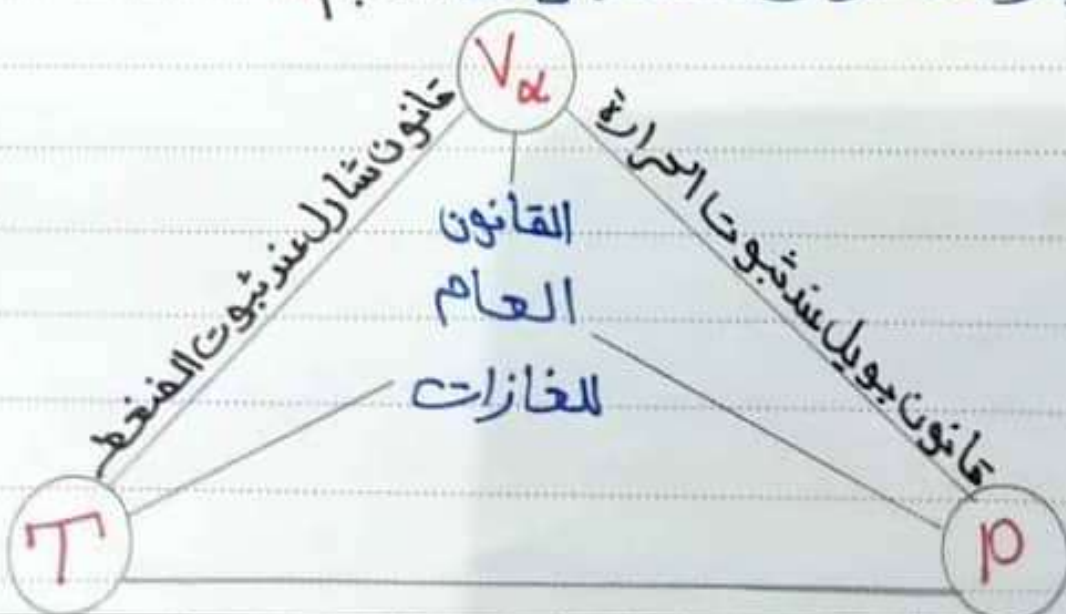 Vα
قانون شارل عند ثبوت الضغط
قانون بويل عند ثبوت الحرارة
القانون
العام
للغازات
T
P